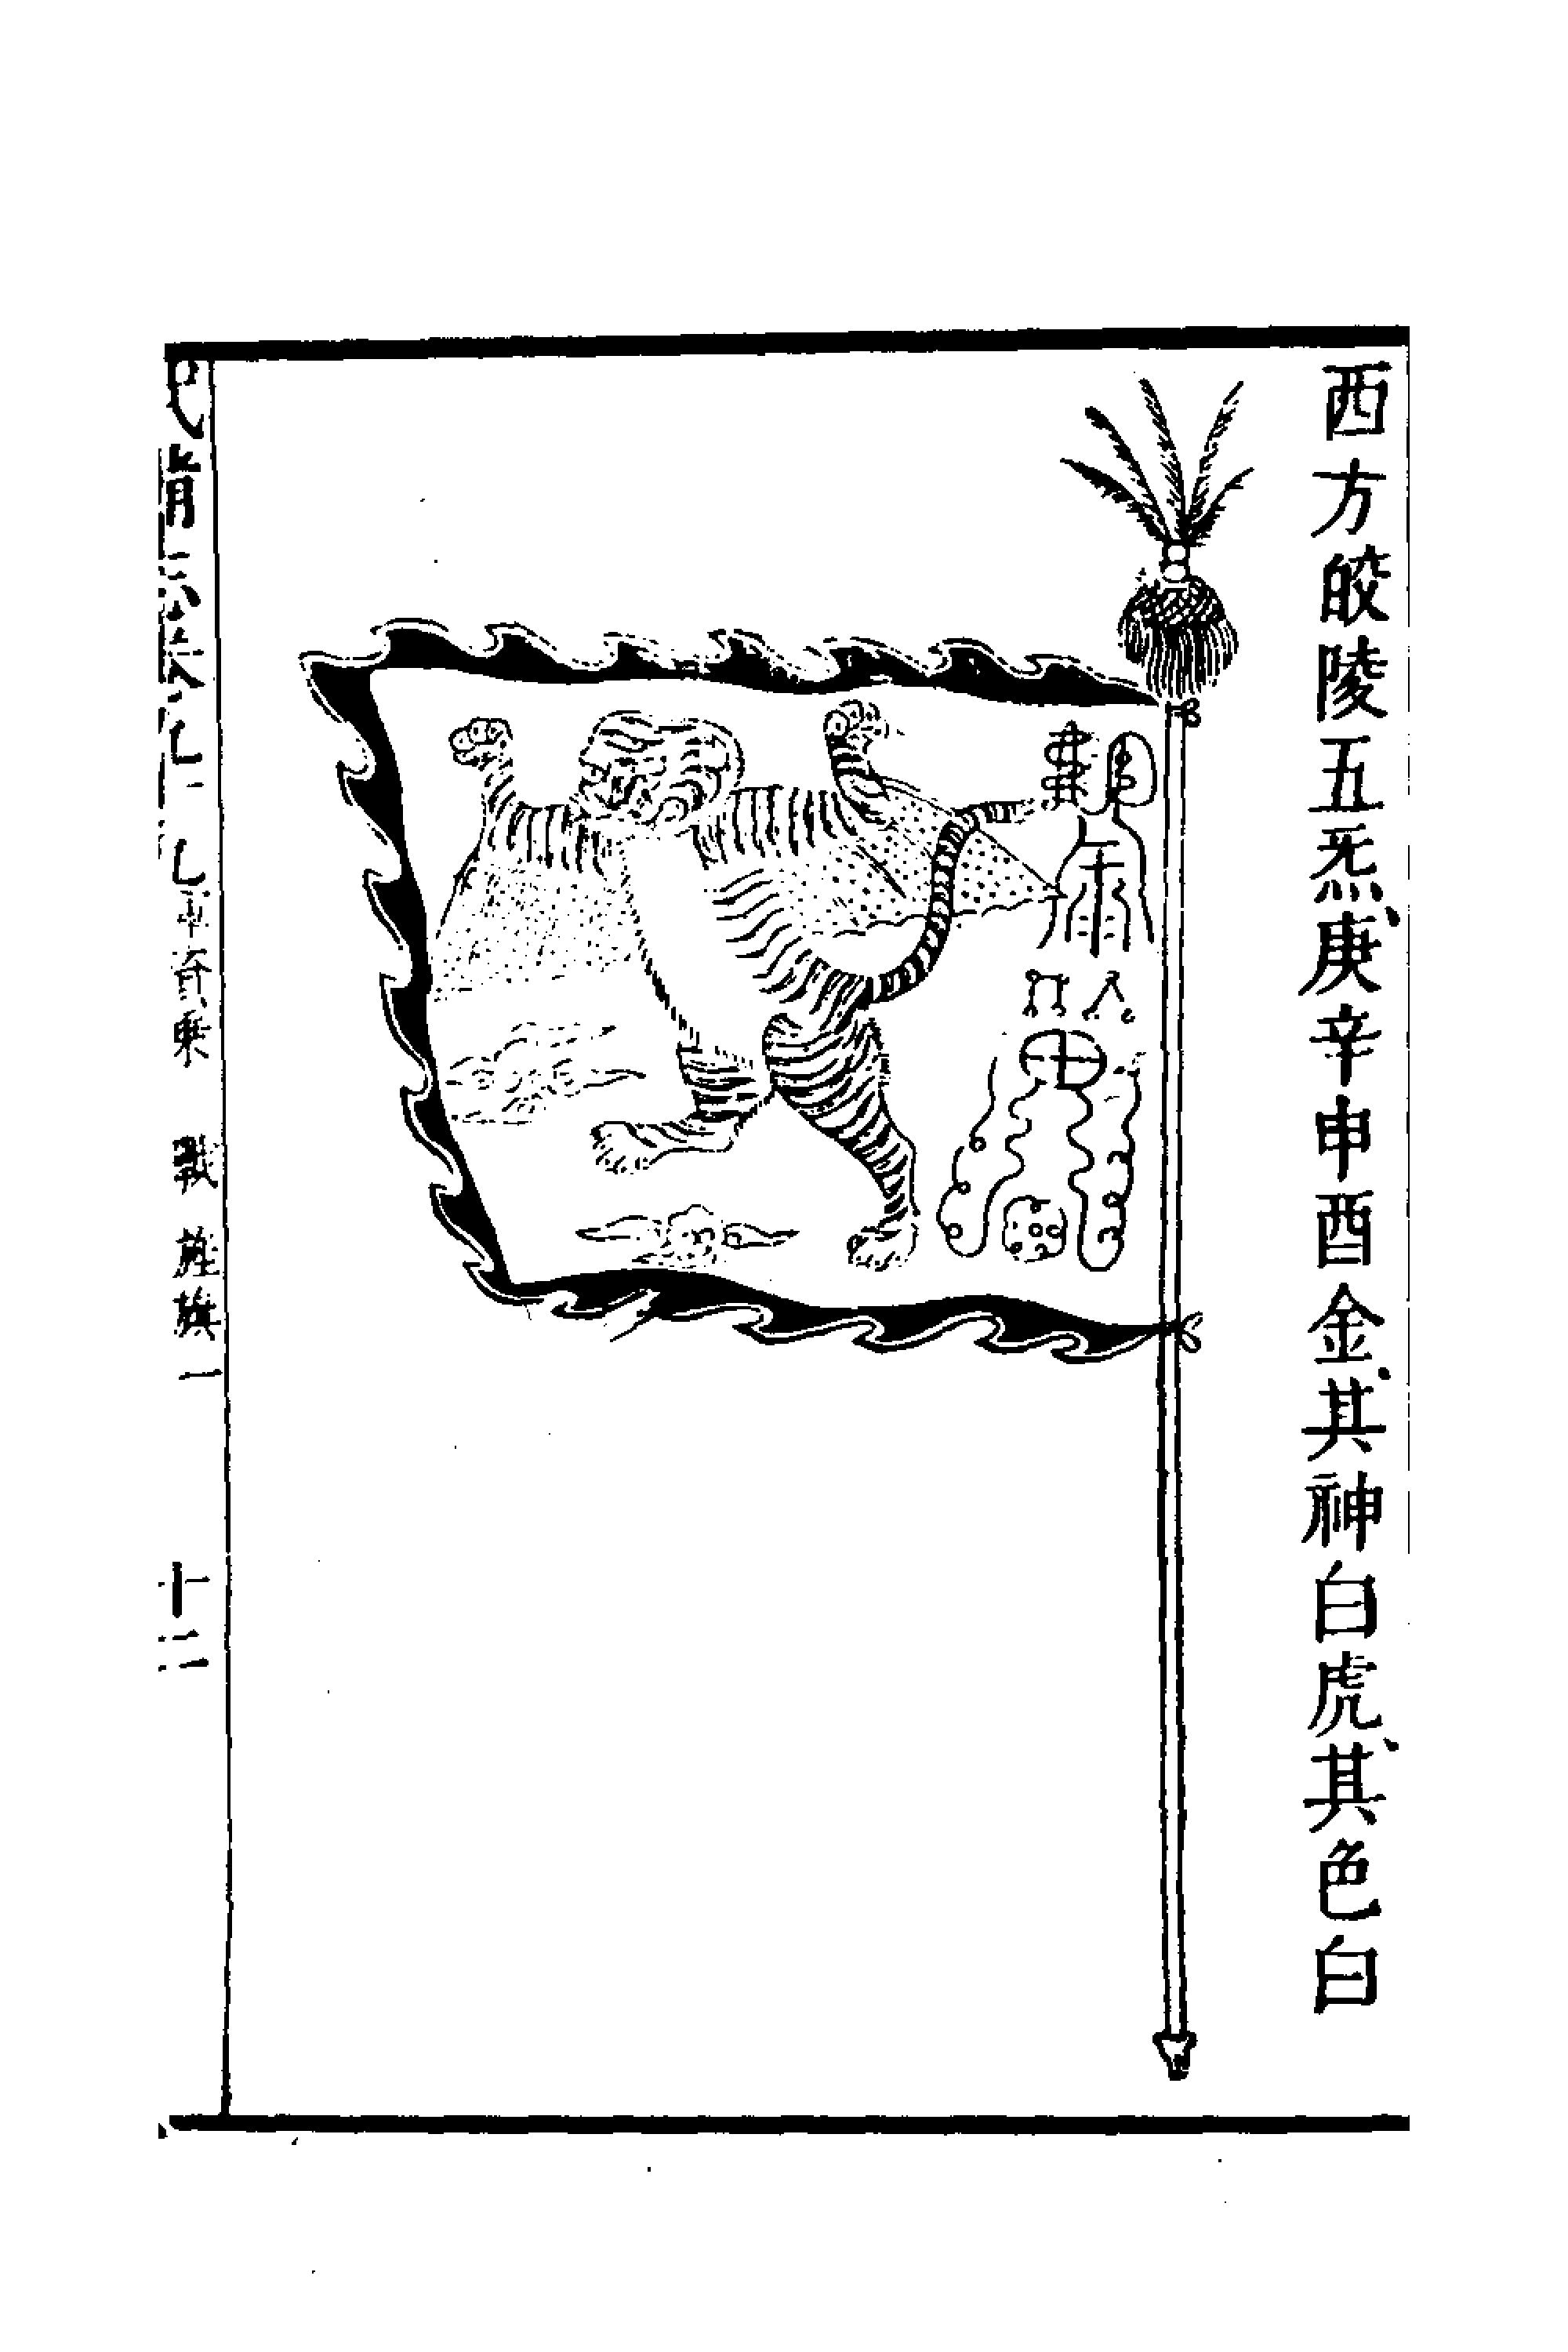 西方皎陵五炁庚辛申酉金其神白虎其色白
軍資乘 戰 旌旗一
十二